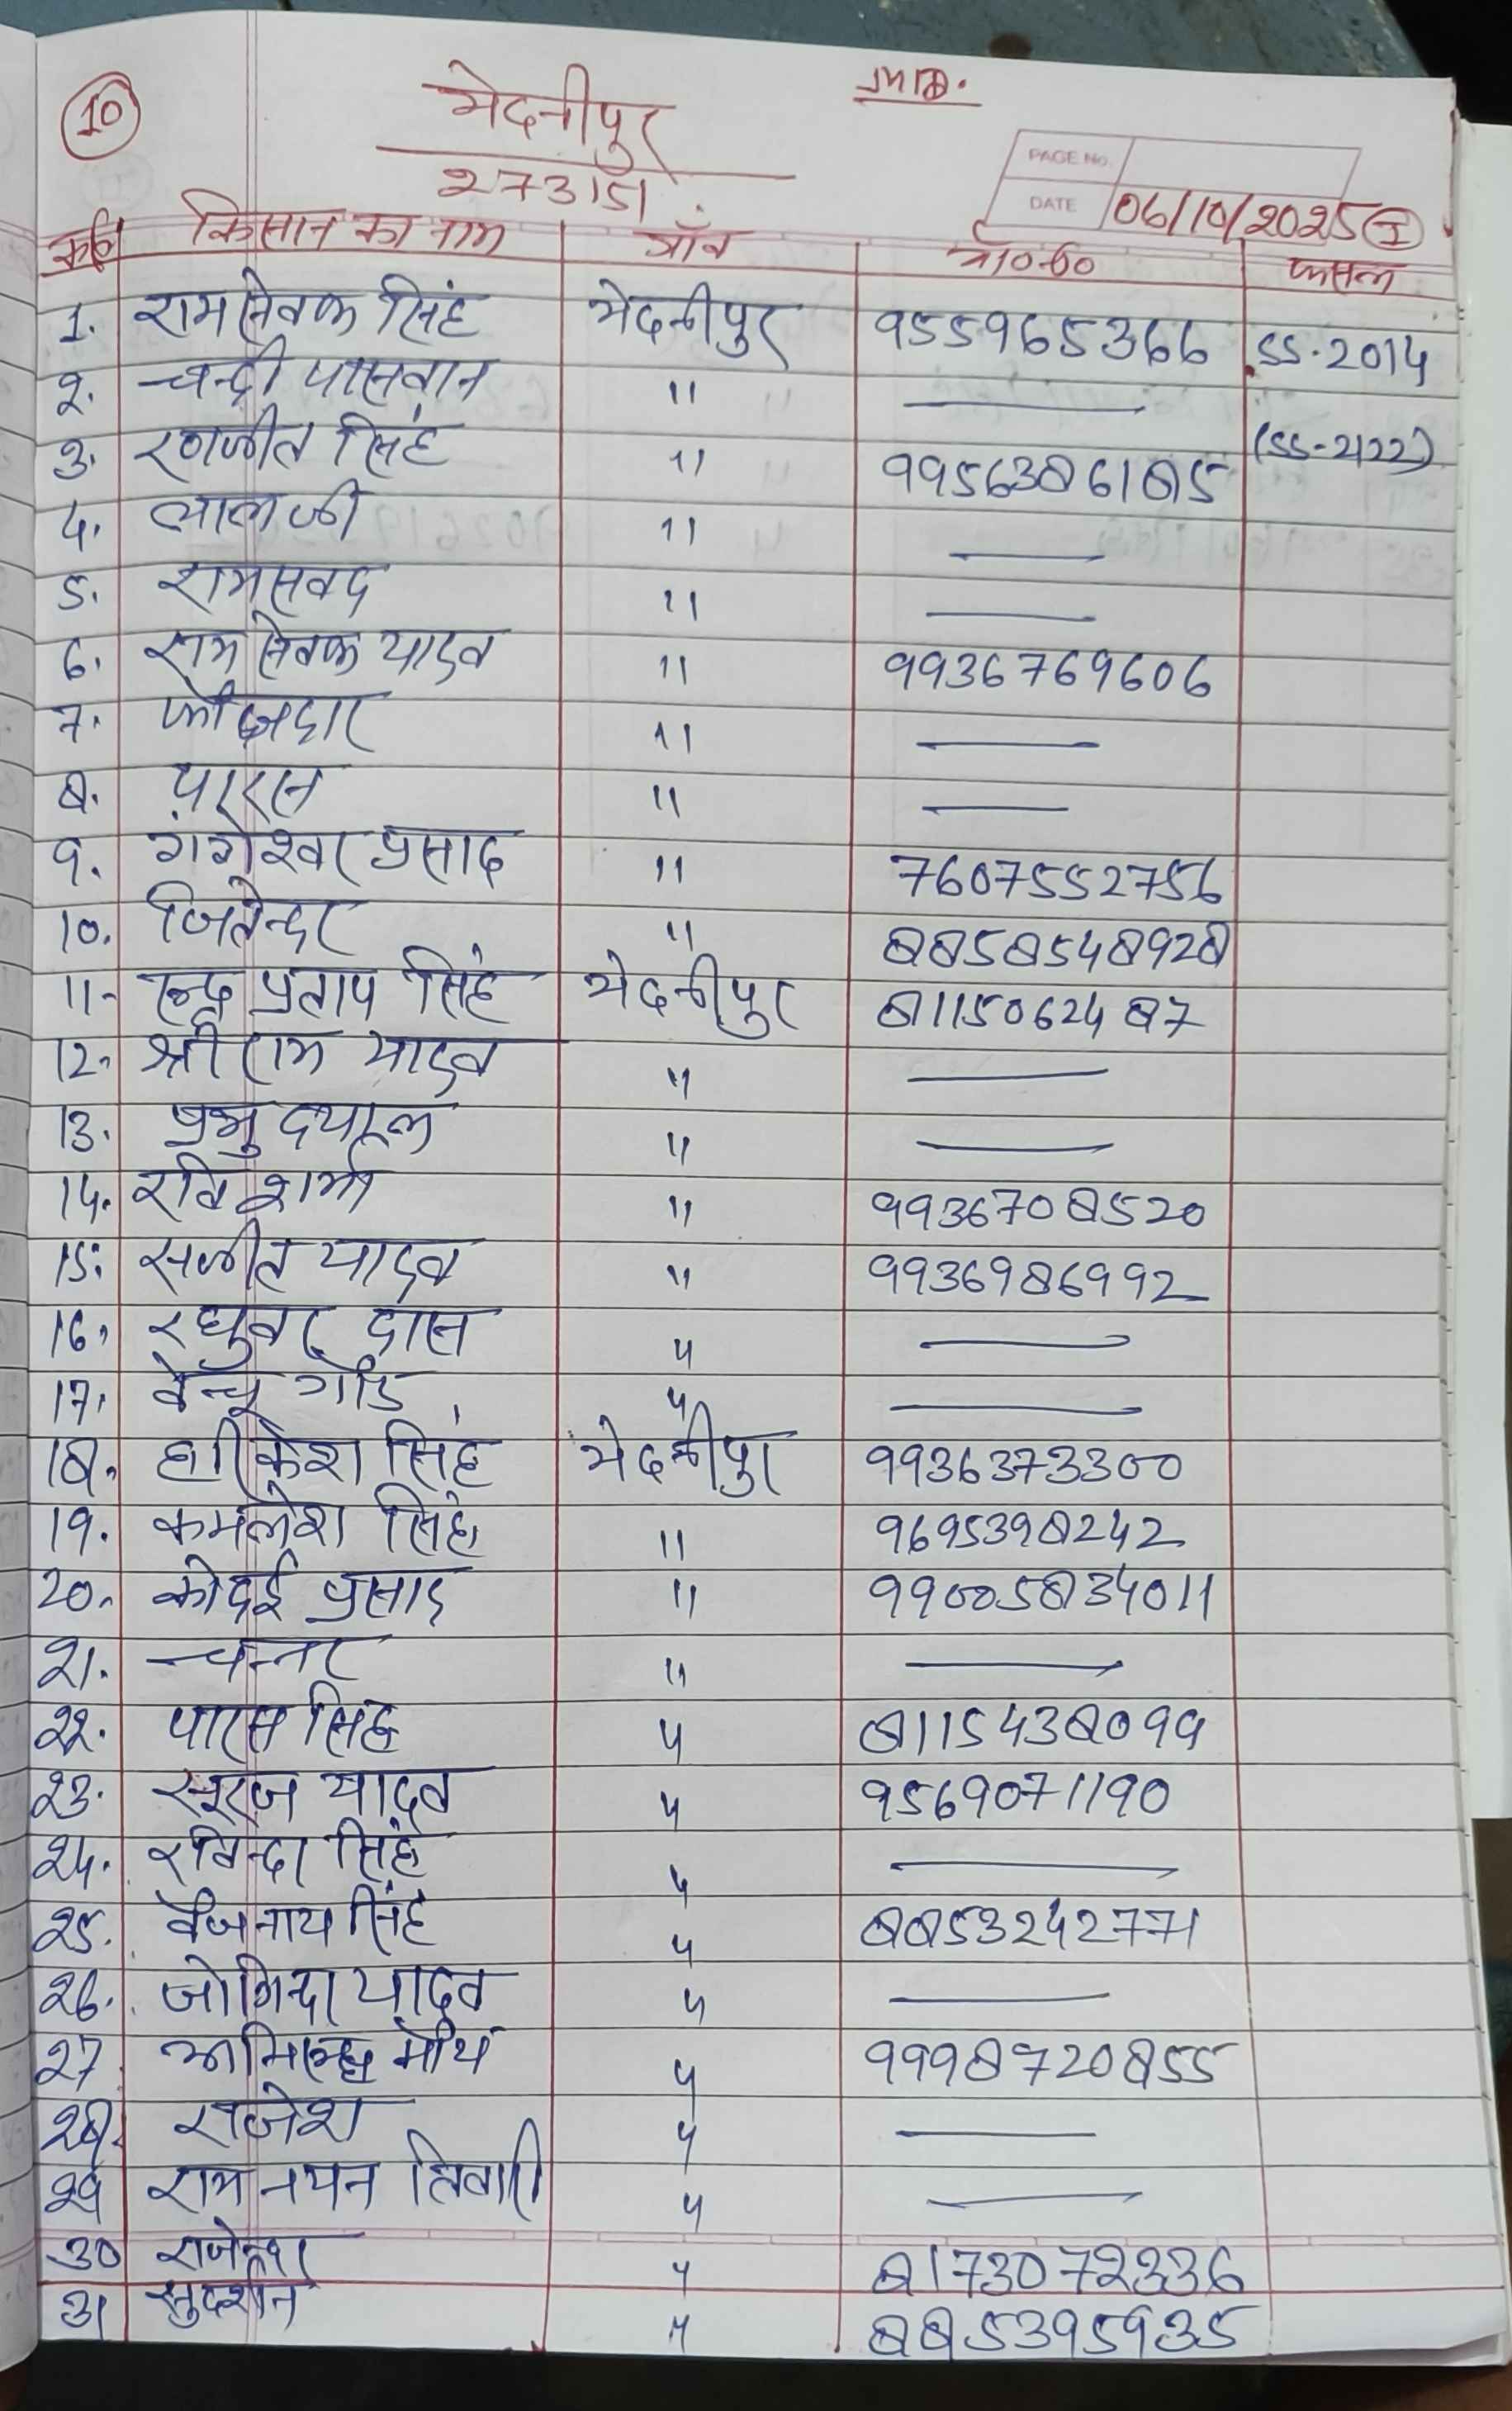 10
मेदनीपुर
273151
PAGE No.
DATE 06/10/2025 I
क्र0 किसान का नाम गाँव मो0न0 फसल
1. रामसेवक सिंह मेदनीपुर 955965366 SS-2014
2. चन्द्री पासवान " —
3. रणजीत सिंह " 9956386185 (SS-2122)
4. लालजी " —
5. रामसवद " —
6. राम सेवक यादव " 9936769606
7. फौजदार " —
8. पारस " —
9. गंगेश्वर प्रसाद " 7607552756
10. जितेन्दर " 8858548928
11- इन्द्र प्रताप सिंह मेदनीपुर 8115062487
12. श्री राम यादव " —
13. प्रभु दयाल " —
14. रवि शर्मा " 9936708520
15. सजीत यादव " 9936986992
16. रघुवर दास " —
17. वेन्चू गौड " —
18. हरिकेश सिंह मेदनीपुर 9936373300
19. कमलेश सिंह " 9695398242
20. कोदई प्रसाद " 99005834011
21. चन्नर " —
22. पारस सिंह " 8115438099
23. सूरज यादव " 9569071190
24. रविन्दर सिंह " —
25. वैजनाथ सिंह " 8853242771
26. जोगिन्दर यादव " —
27. मौर्य " 9998720855
28. राजेश " —
29 राम नयन तिवारी " —
30 राजेन्दर " 8173072336
31 सुदर्शन " 885395935